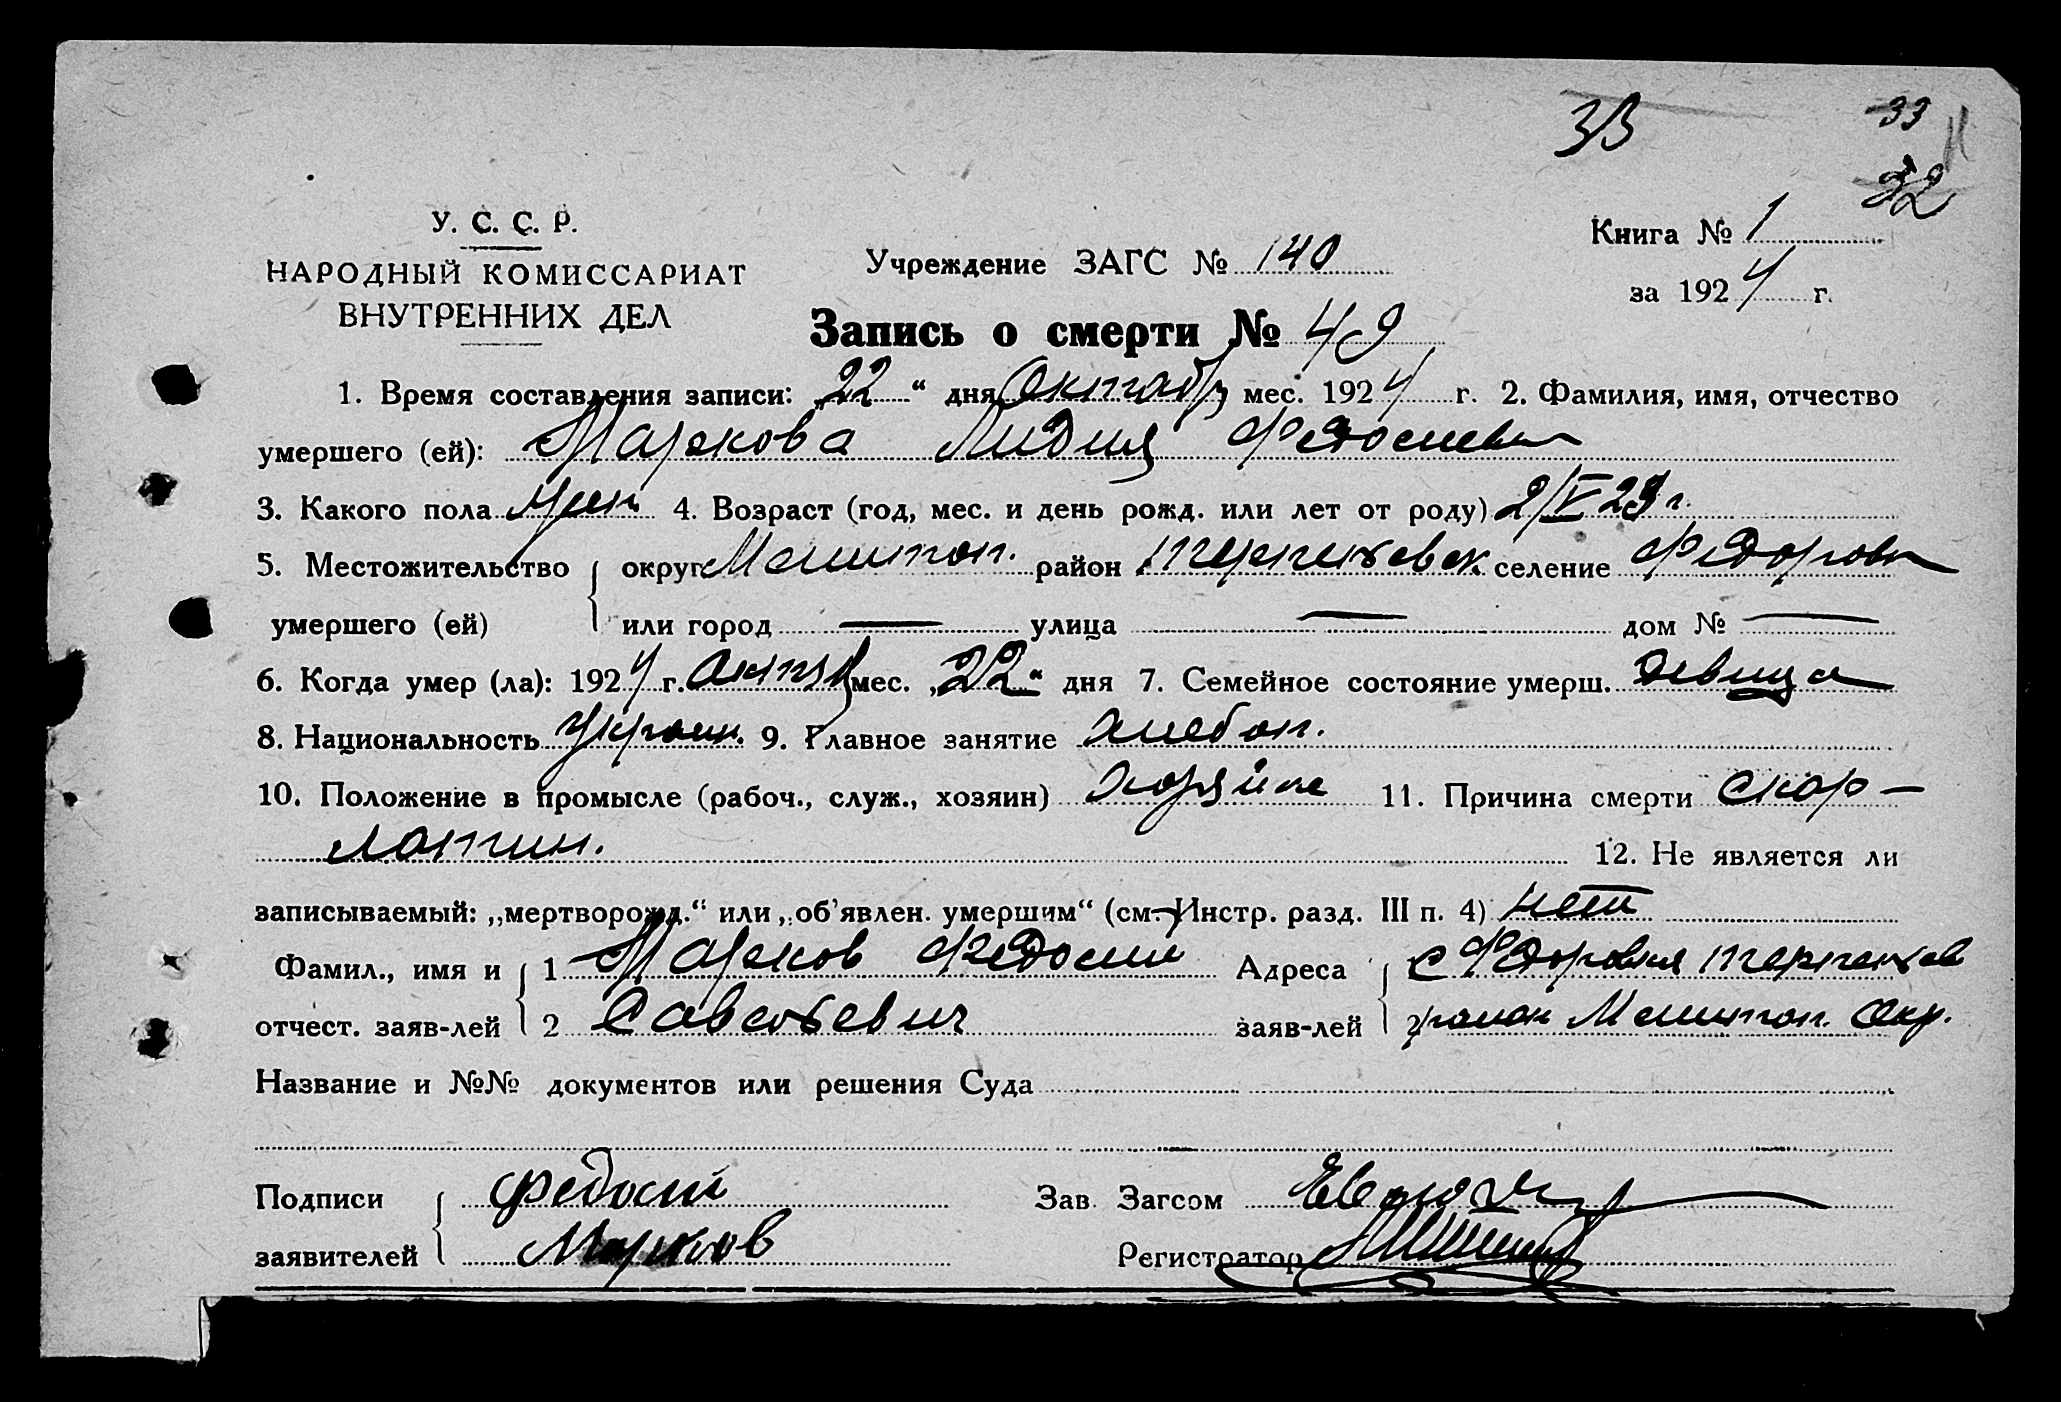 33
33
32
У. С. С. Р.
НАРОДНЫЙ КОМИССАРИАТ
ВНУТРЕННИХ ДЕЛ
Учреждение ЗАГС № 140
Книга № 1
за 1924 г.
Запись о смерти № 49
1. Время составления записи: „22“ дня Октябр мес. 1924 г. 2. Фамилия, имя, отчество
умершего (ей): Маркова Лидия Федосиевн
3. Какого пола жен 4. Возраст (год, мес. и день рожд. или лет от роду) 2/V 23 г.
5. Местожительство округ Мелитоп. район Терпеньевск селение Федоровк
умершего (ей) или город — улица — дом № —
6. Когда умер (ла): 1924 г. Октяб мес. „22“ дня 7. Семейное состояние умерш. девица
8. Национальность Украин. 9. Главное занятие хлебоп.
10. Положение в промысле (рабоч., служ., хозяин) хозяин 11. Причина смерти скар-
латин. 12. Не является ли
записываемый: „мертворожд.“ или „об’явлен. умершим“ (см. Инстр. разд. III п. 4) нет
Фамил., имя и 1 Марков Федосий Адреса с Федоровка Терпеньев
отчест. заяв-лей 2 Савельевич заяв-лей 2 район Мелитоп. Окр.
Название и №№ документов или решения Суда
Подписи Федосий Зав. Загсом
заявителей Марков Регистратор